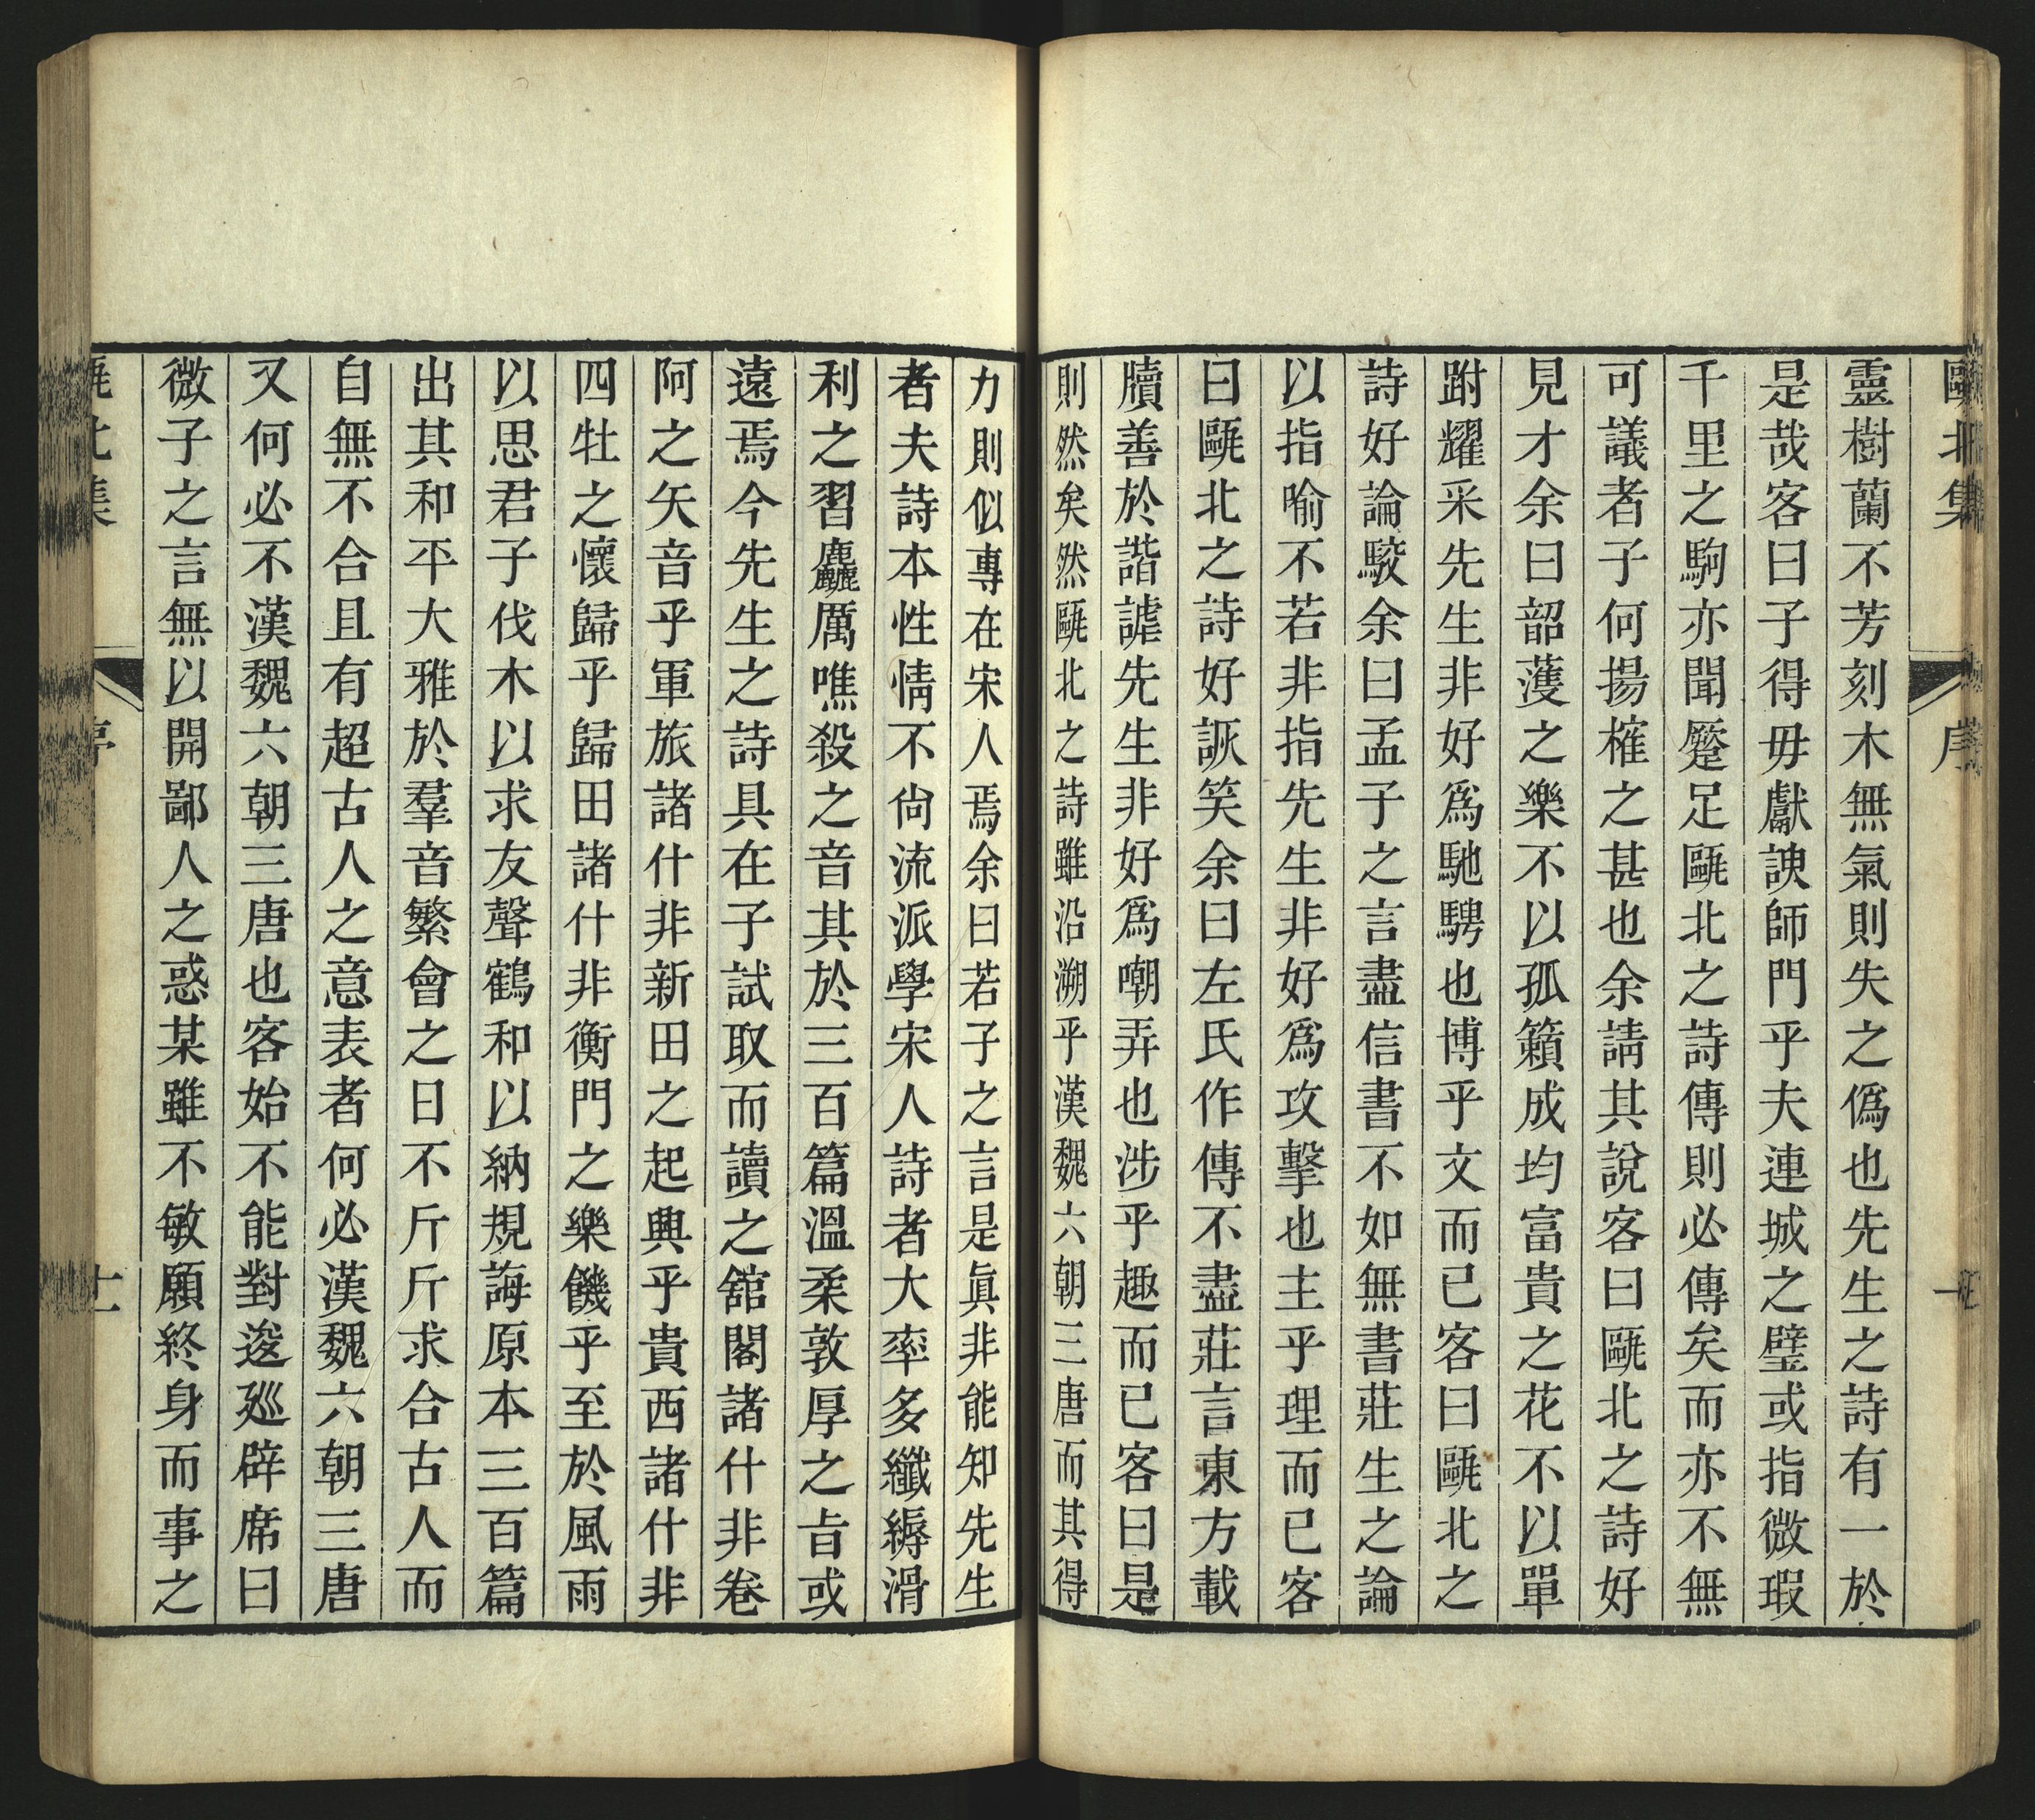 甌北集
序
靈樹蘭不芳刻木無氣則失之僞也先生之詩有一於
是哉客曰子得毋獻諛師門乎夫連城之璧或指微瑕
千里之駒亦聞蹷足甌北之詩傳則必傳矣而亦不無
可議者子何揚搉之甚也余請其說客曰甌北之詩好
見才余曰韶頀之樂不以孤籟成均富貴之花不以單
跗耀采先生非好爲馳騁也博乎文而已客曰甌北之
詩好論駮余曰孟子之言盡信書不如無書莊生之論
以指喻不若非指先生非好爲攻擊也主乎理而已客
曰甌北之詩好詼笑余曰左氏作傳不盡莊言東方載
牘善於諧謔先生非好爲嘲弄也涉乎趣而已客曰是
則然矣然甌北之詩雖沿溯乎漢魏六朝三唐而其得
力則似專在宋人焉余曰若子之言是眞非能知先生
者夫詩本性情不尙流派學宋人詩者大率多纖縟滑
利之習麤厲噍殺之音其於三百篇溫柔敦厚之旨或
遠焉今先生之詩具在子試取而讀之舘閣諸什非卷
阿之矢音乎軍旅諸什非新田之起興乎貴西諸什非
四牡之懷歸乎歸田諸什非衡門之樂饑乎至於風雨
以思君子伐木以求友聲鶴和以納規誨原本三百篇
出其和平大雅於羣音繁會之日不斤斤求合古人而
自無不合且有超古人之意表者何必漢魏六朝三唐
又何必不漢魏六朝三唐也客始不能對逡廵辟席曰
微子之言無以開鄙人之惑某雖不敏願終身而事之
甌北集
序